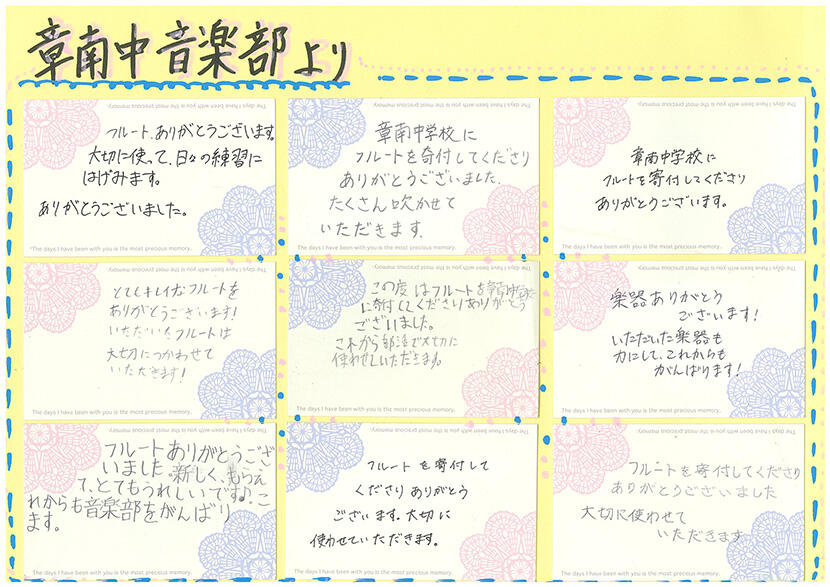 章南中音楽部より
The days I have been with you is the most precious memory.
フルート、ありがとうございます。
大切に使って、日々の練習に
はげみます。
ありがとうございました。
"The days I have been with you is the most precious memory.
The days I have been with you is the most precious memory.
章南中学校に
フルートを寄付してくださり
ありがとうございました。
たくさん吹かせて
いただきます。
The days I have been with you is the most precious memory.
章南中学校に
フルートを寄付してくださり
ありがとうございます。
The days I have been with you is the most precious memory.
The days I have been with you is the most precious memory.
とてもキレイなフルートを
ありがとうございます!
いただいたフルートは
大切につかわせて
いただきます!
The days I have been with you is the most precious memory.
The days I have been with you is the most precious memory.
この度はフルートを章南中学校
に寄付してくださりありがとう
ございました。
これから部活で大切に
使わせていただきます。
The days I have been with you is the most precious memory.
The days I have been with you is the most precious memory.
楽器ありがとう
ございます!
いただいた楽器も
力にして、これからも
がんばります!
The days I have been with you is the most precious memory.
フルートありがとうござ
いました。新しく、もらえ
て、とてもうれしいです♪こ
れからも音楽部をがんばり
ます。
The days I have been with you is the most precious memory.
フルートを寄付して
くださりありがとう
ございます。大切に
使わせていただきます。
The days I have been with you is the most precious memory.
The days I have been with you is the most precious memory.
フルートを寄付してくださり
ありがとうございました
大切に使わせて
いただきます
The days I have been with you is the most precious memory.